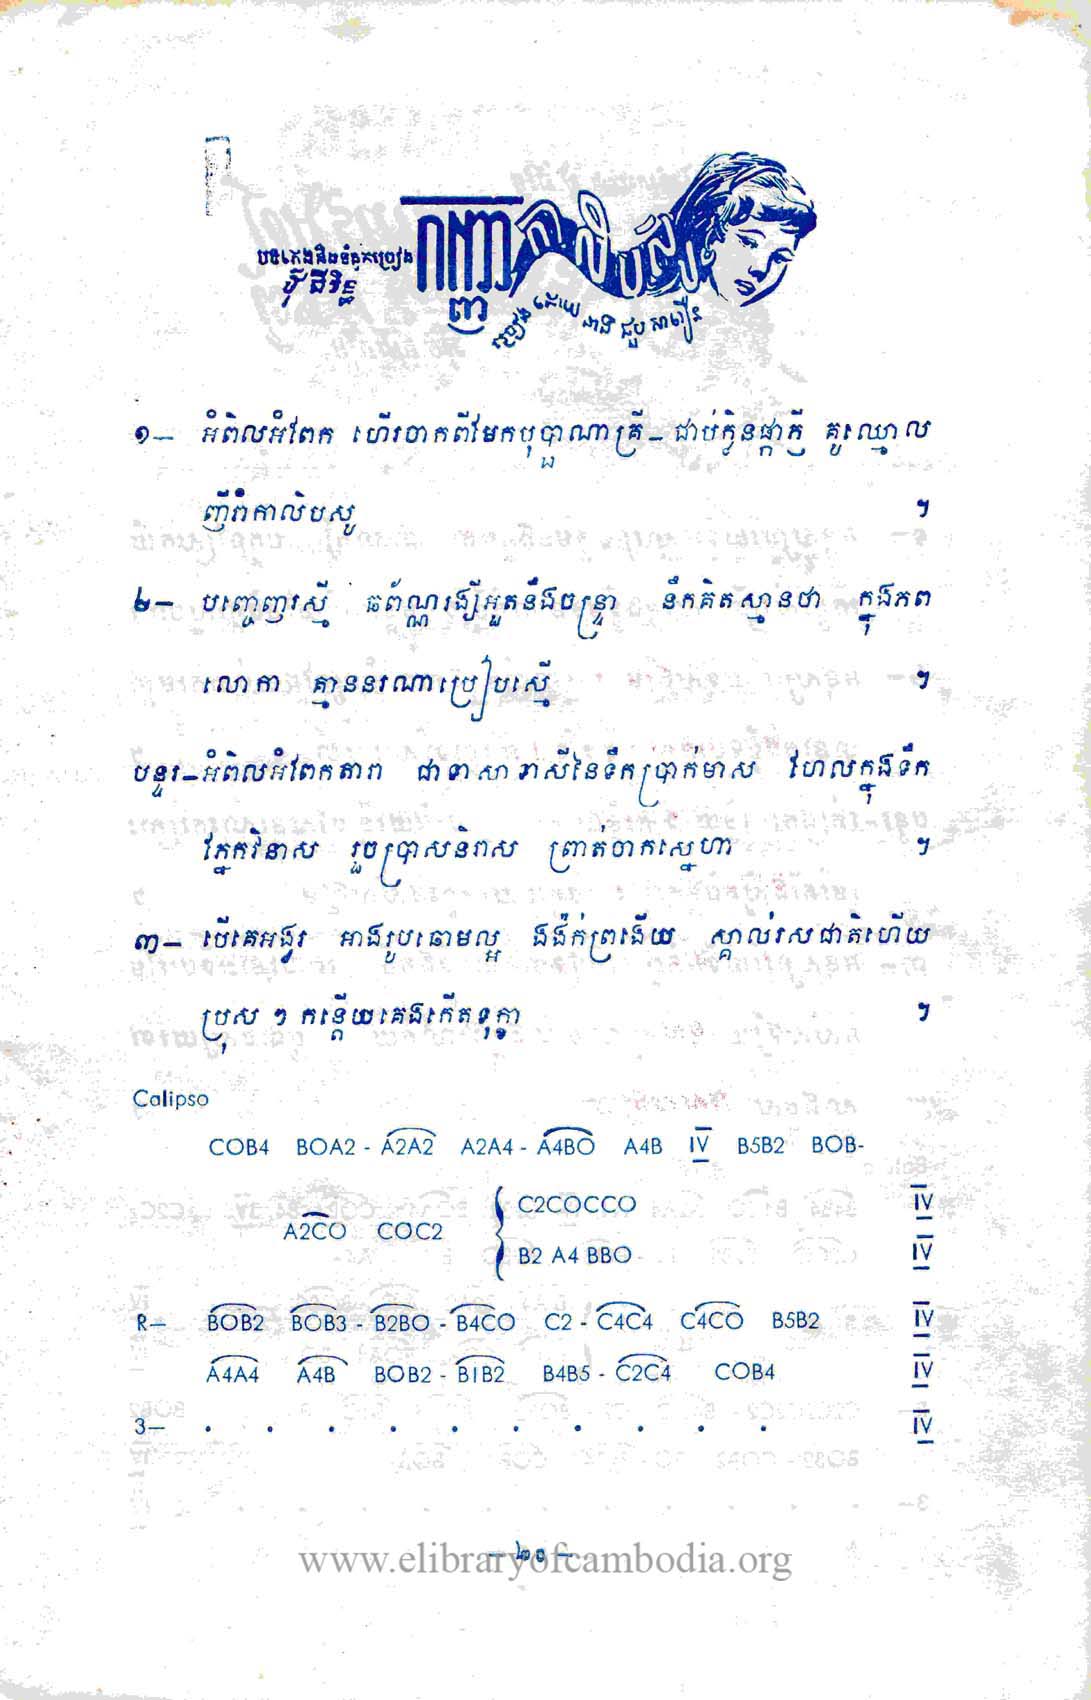 បទភ្លេងនិងទំនុកច្រៀង
កញ្ញាកាលិបសូ
ច្រៀងដោយ
១— អំពិលអំពែក ហើរចាកពីមែកបុប្ផាណាគ្រី — ជាប់ក្វិនផ្កាភ្ញី គូឈ្មោល
ញីរាំកាលិបសូ ។
២— បញ្ចេញរស្មី ឆព័ណ្ណរង្សីអួតនឹងចន្ទ្រា នឹកគិតស្មានថា ក្នុងភព
លោកា គ្មាននរណាប្រៀបស្មើ ។
បន្ទរ—អំពិលអំពែកតារា ជាទាសារាសីនៃទឹកប្រាក់មាស ហែលក្នុងទឹក
ភ្នែកវិនាស រួចប្រាសនិរាស ព្រាត់ចាកស្នេហា ។
៣— បើគេអង្វរ អាងរូបឆោមល្អ ងង៉ក់ព្រងើយ ស្គាល់រសជាតិហើយ
ប្រុស ៗ កន្តើយគេងកើតទុក្ខា ។
Calipso
COB4 BOA2 - A2A2 A2A4 - A4BO A4B IV B5B2 BOB-
A2CO COC2 { C2COCCO IV
B2 A4 BBO IV
R— BOB2 BOB3 - B2BO - B4CO C2 - C4C4 C4CO B5B2 IV
A4A4 A4B BOB2 - B1B2 B4B5 - C2C4 COB4 IV
3— . . . . . . . . . . IV
www.elibraryofcambodia.org